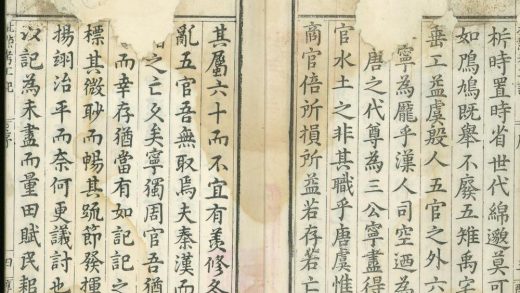 析時置時省世代綿邈莫可
如鳲鳩既舉不廢五雉禹
垂工益虞殷人五官之外六
寧為龎乎漢人司空廼為
唐之代尊為三公寧盡得
官水土之非其職乎唐虞惟
商官倍所損所益若存若亡
其屬六十而不宜有羨修冬
亂五官吾無取焉夫秦漢而
之亡久矣寧獨周官吾猶
而幸存猶當有如記記之
標其微眇而暢其疏節發揮
揚翊治平而奈何更議討也
記為未盡而量田賦民